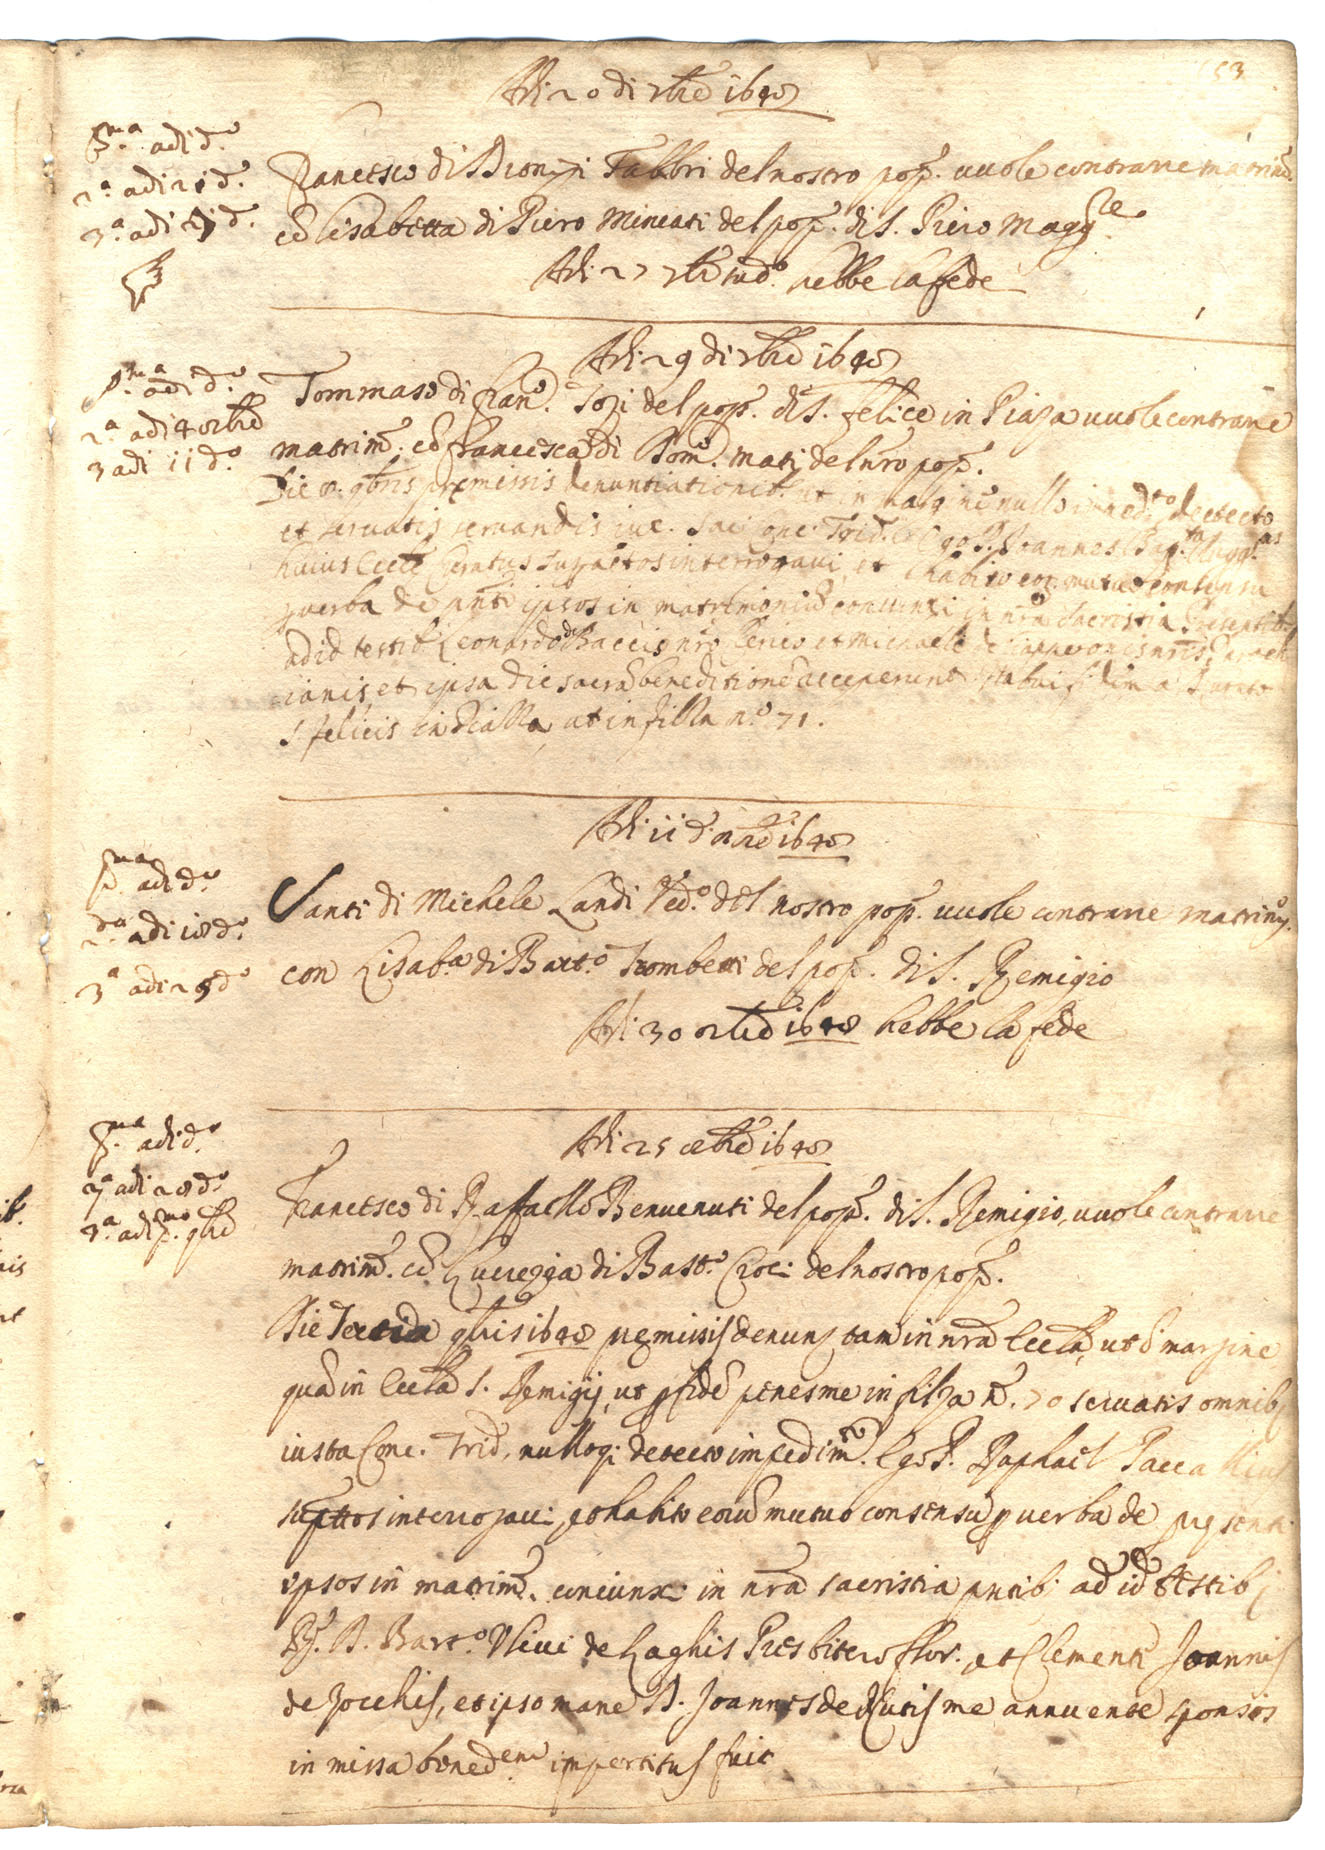 153
Adi 20 di 7bre 1648
p.ma adi d.o
2.a adi 21 d.o
3.a adi 27 d.o
Francesco di Dionigi Fabbri del nostro pop. vuole contrarre matrim.
cō Lisabetta di Piero Mineati del pop. di S. Piero Magg.re
Adi 27 7bre sud.o hebbe la fede
Adi 29 di 7bre 1648
p.ma adi d.o
2.a adi 4 8bre
3 adi 11 d.o
Tommaso di Fran.o Tozi del pop. di S. Felice in Piaza vuole contrarre
matrim. cō Francesca di Dom.o Mati del nro pop.
Die 8 9bris premissis denuntiationib. ut in margine nullo imped.to detecto
et servatis servandis iux. Sac. Conc. Trid. Ego P. Joannes Bap.ta
huius Eccle Curatus supractos interrogavi, et habito eor. mutuo consensu
p verba de pnti ipsos in matrimoniū coniunxi in nra Sacristia Presentib.
ad id testib. Leonardo de Bacciis nro Clerico et Michaele de nris Paroch
ianis et ipsa die sacrā benedictionē acceperunt habui fidem a Curato
S. Felicis in Pialla, ut in filla n.o 71.
Adi 11 d. 8bre 1648
p.ma adi d.o
2.a adi 18 d.o
3.a adi 25 d.o
Santi di Michele Landi Ved.o del nostro pop. vuole contrarre matrim.
con Lisab.a di Bart.o Trombetti del pop. di S. Remigio
Adi 30 8bre 1648 hebbe la fede
Adi 25 8bre 1648
p.ma adi d.o
2.a adi 28 d.o
3.a adi p.mo 9bre
Francesco di Raffaello Benvenuti del pop. di S. Remigio, vuole contrarre
matrim. cō Lucrezia di Batt.o Croci del nostro pop.
Die Tertia 9bris 1648 premissis denunt. tam in nra Eccla, ut ī margine
quā in Eccla S. Remigij, ut p fidē penes me in filza n. 70 servatis omnib.
iusta Conc. Trid. nulloq; detecto impedim.to Ego P. Raphael
supttos interrogavi, et habito eoru mutuo consensu p verba de presenti
ipsos in matrim. coniunxi in nra sacristia pntib. ad id testib;
R. D. Bart.o Ulivi de Laghis Presbitero flor. et Clemente Joannis
de Zocchis, et ipso mane D. Joannes de me annuente sponsos
in missa bened.em impertitus fuit